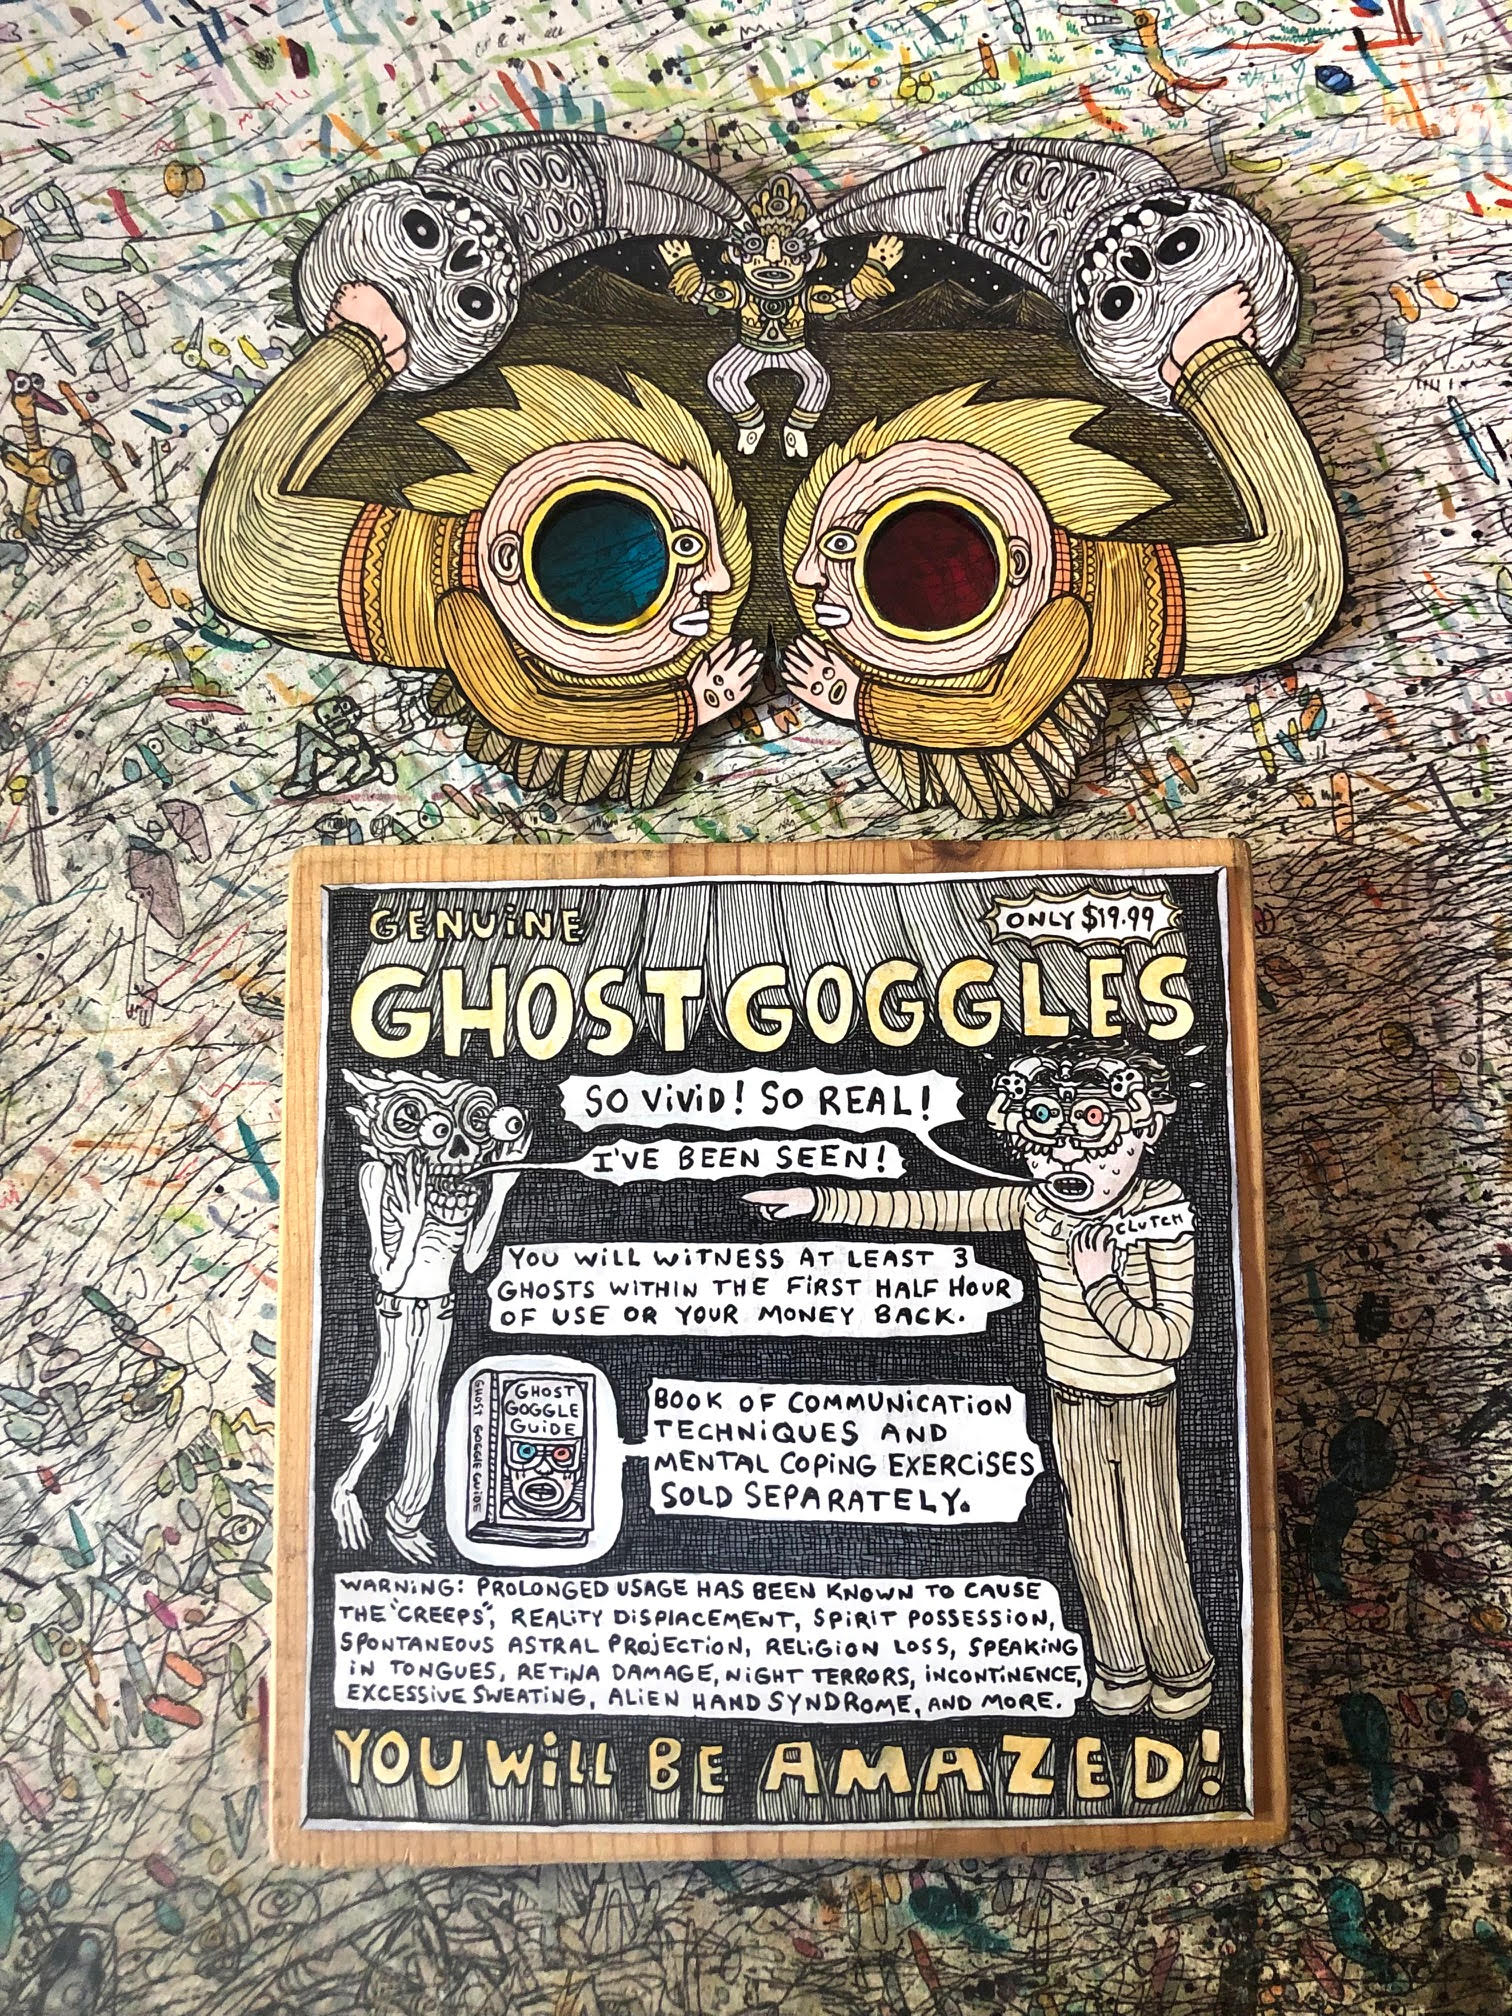 GENUiNE
ONLY $19.99
GHOST GOGGLES
SO ViViD! SO REAL!
I'VE BEEN SEEN!
CLUTCH
YOU WiLL WiTNESS AT LEAST 3
GHOSTS WiTHIN THE FiRST HALF HOUR
OF USE OR YOUR MONEY BACK.
GHOST
GOGGLE
GUiDE
GHOST GOGGLE GUiDE
BOOK OF COMMUNiCATiON
TECHNiQUES AND
MENTAL COPiNG EXERCiSES
SOLD SEPARATELY.
WARNiNG: PROLONGED USAGE HAS BEEN KNOWN TO CAUSE
THE "CREEPS", REALiTY DiSPLACEMENT, SPiRiT POSSESSiON,
SPONTANEOUS ASTRAL PROJECTiON, RELiGiON LOSS, SPEAKiNG
iN TONGUES, RETiNA DAMAGE, NiGHT TERRORS, iNCONTiNENCE,
EXCESSiVE SWEATiNG, ALiEN HAND SYNDROME, AND MORE.
YOU WiLL BE AMAZED!